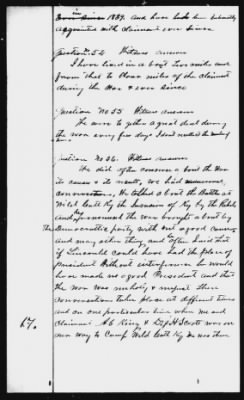 since 1839. And have been intimately
acquainted with claimant ever since
Question 54 Witness answers
I have lived in about two miles and
from that to three miles of the claimant
during the War & ever since
Question No 55 Witness answers
He were together a great deal during
the war every few days I don't recollect the
Question No 56. Witness answers
We did often converse about the War
its causes & its events, we had numerous
conversations, He talked about the Battle at
Wild Catt Ky the Invasion of Ky by the Rebels
And pronounced the war brought about by
the Democratic party with out a good cause
and many other things and often said that
if Lincoln could have had the place of
President Without interference he would
have made us a good President and that
the War was unholy & unjust these
conversations take place at different times
and on one particular time when me and
Claimant A C King & D J H Scott was on
our way to Camp Wild Catt Ky we then
67.